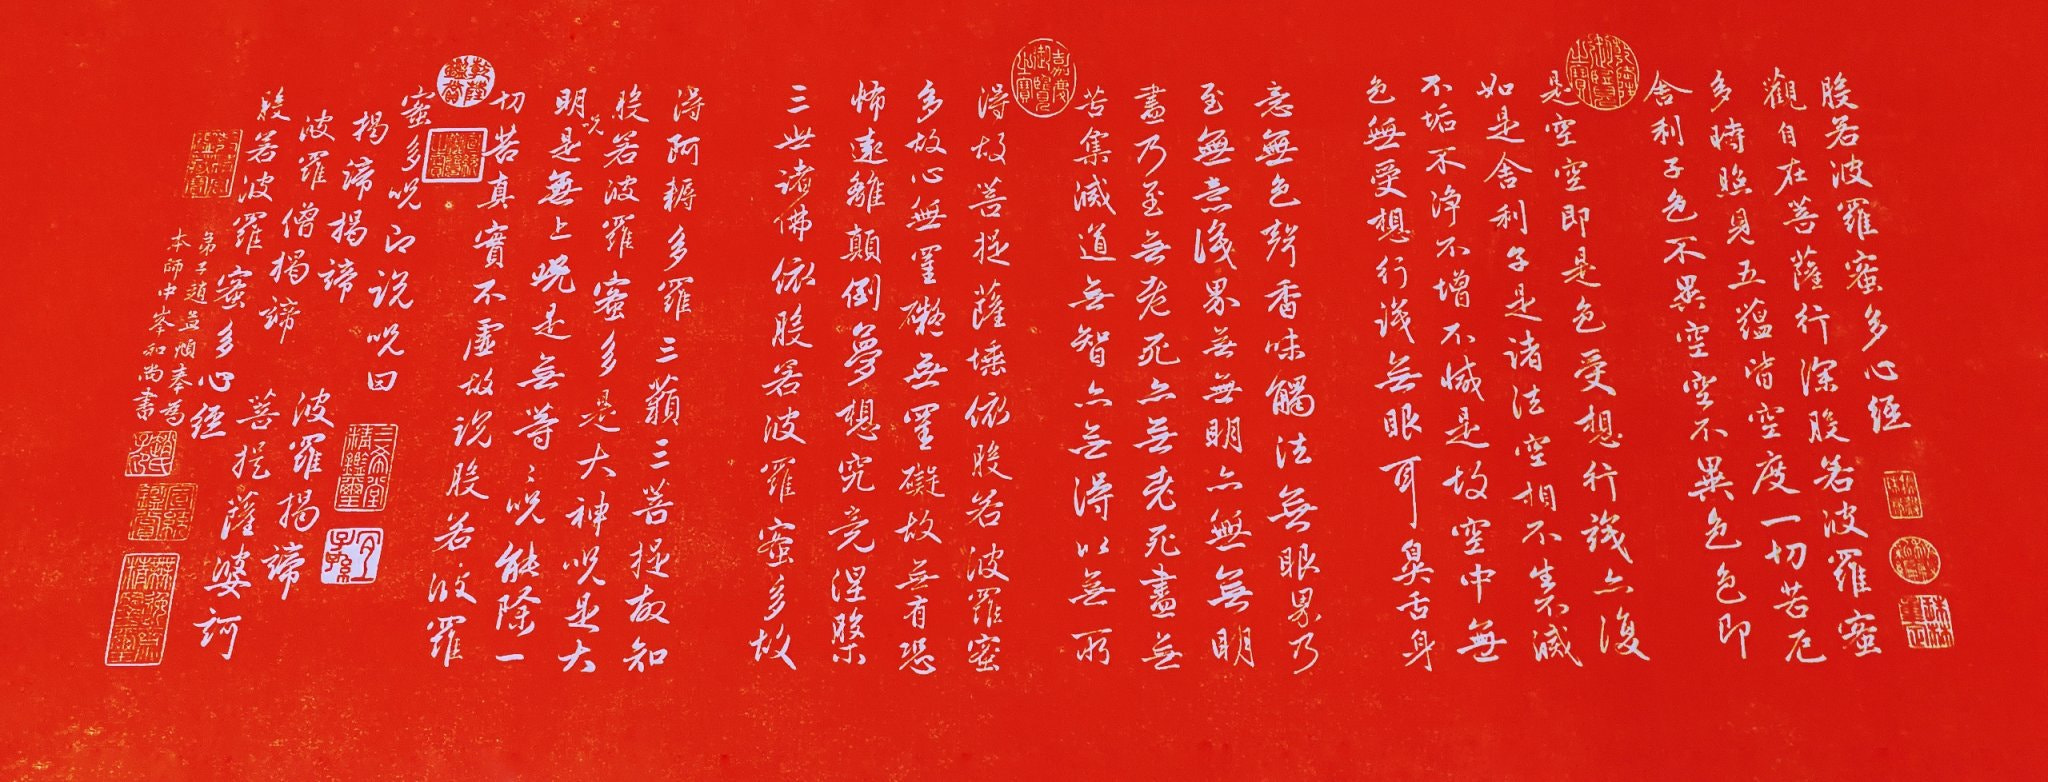 般若波羅蜜多心經
觀自在菩薩行深般若波羅蜜
多時照見五蘊皆空度一切苦厄
舍利子色不異空空不異色色即
是空空即是色受想行識亦復
如是舍利子是諸法空相不生不滅
不垢不淨不增不減是故空中無
色無受想行識無眼耳鼻舌身
意無色聲香味觸法無眼界乃
至無意識界無無明亦無無明
盡乃至無老死亦無老死盡無
苦集滅道無智亦無得以無所
得故菩提薩埵依般若波羅蜜
多故心無罣礙無罣礙故無有恐
怖遠離顛倒夢想究竟涅槃
三世諸佛依般若波羅蜜多故
得阿耨多羅三藐三菩提故知
般若波羅蜜多是大神咒是大
明咒是無上咒是無等々咒能除一
切苦真實不虛故說般若波羅
蜜多咒即說咒曰
揭諦揭諦 波羅揭諦
波羅僧揭諦 菩提薩婆訶
般若波羅蜜多心經
弟子趙孟頫奉為
本師中峯和尚書
乾隆御覽之寶
嘉慶御覽之寶
乾隆鑑賞
三希堂精鑑璽
宜子孫
宣統鑑賞
無逸齋精鑑璽